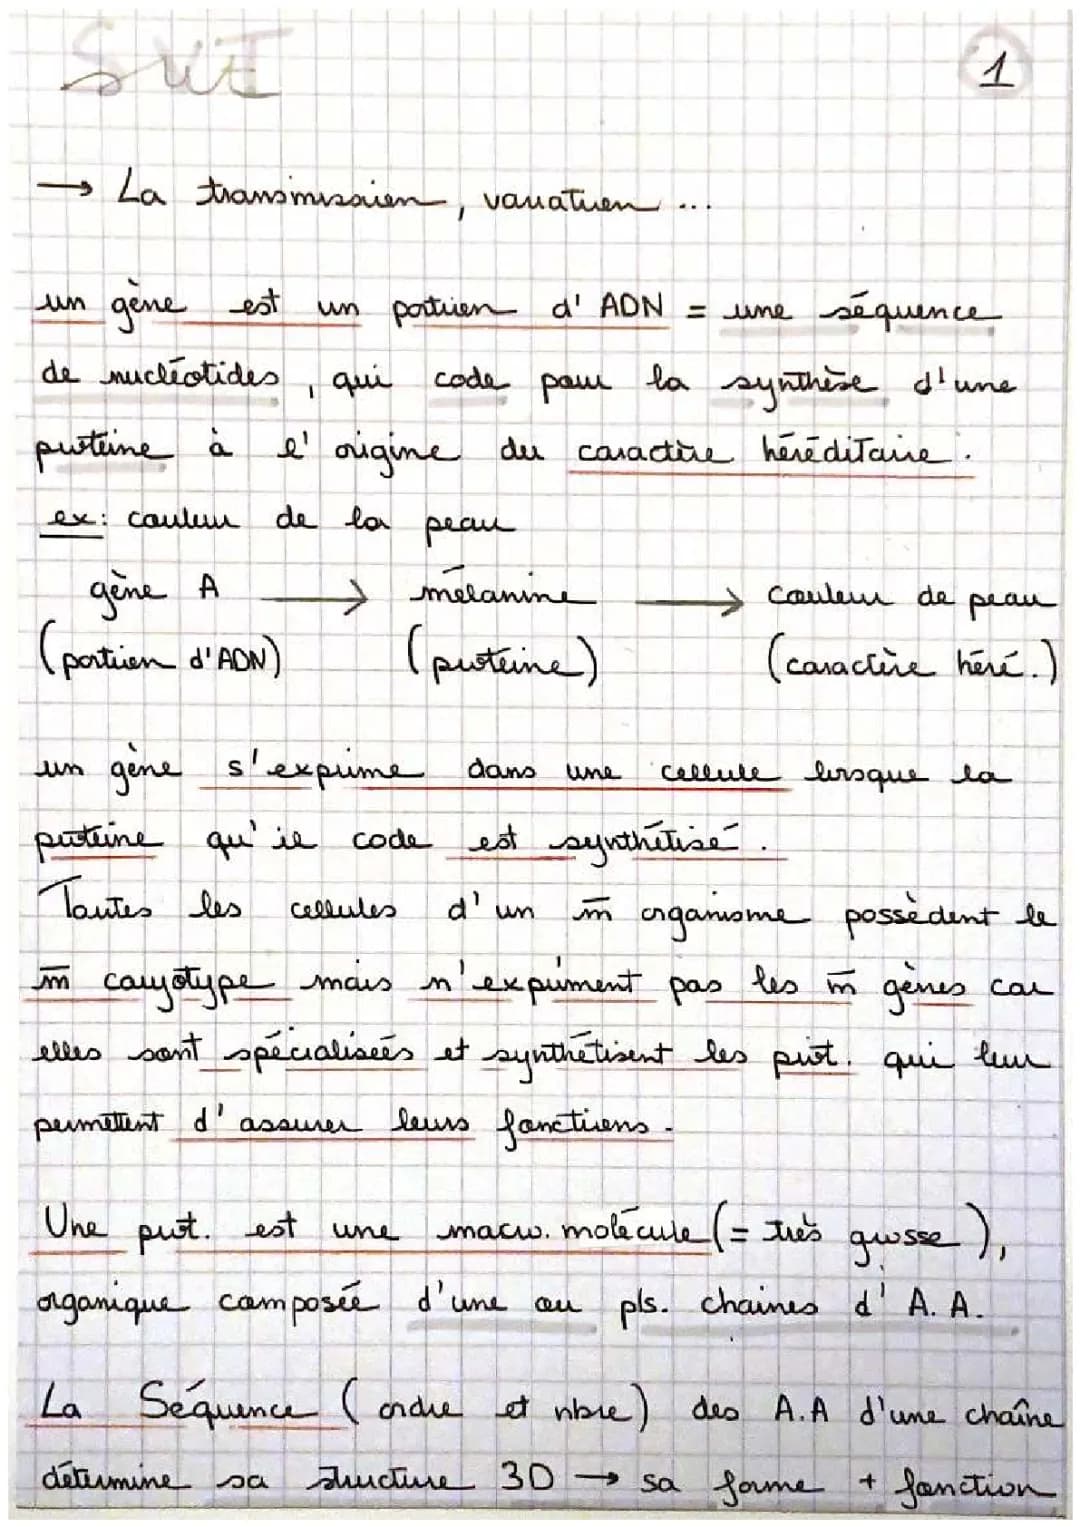 SVT
1
→ La transmission, variation ...
un gène est un portion d' ADN = une séquence
de nucléotides, qui code pour la synthèse d'une
protéine à l' origine du caractère héréditaire.
ex: couleur de la peau
gène A → mélanine → couleur de peau
(portion d'ADN) (protéine) (caractère héré.)
un gène s'exprime dans une cellule lorsque la
protéine qu'il code est synthétisé.
Toutes les cellules d'un m̄ organisme possèdent le
m̄ caryotype mais n'expriment pas les m̄ gènes car
elles sont spécialisées et synthétisent les prot. qui leur
permettent d'assurer leurs fonctions.
Une prot. est une macro. molécule (= très grosse),
organique composée d'une ou pls. chaines d' A. A.
La Séquence (ordre et nbre) des A.A d'une chaîne
détermine sa structure 3D → sa forme + fonction